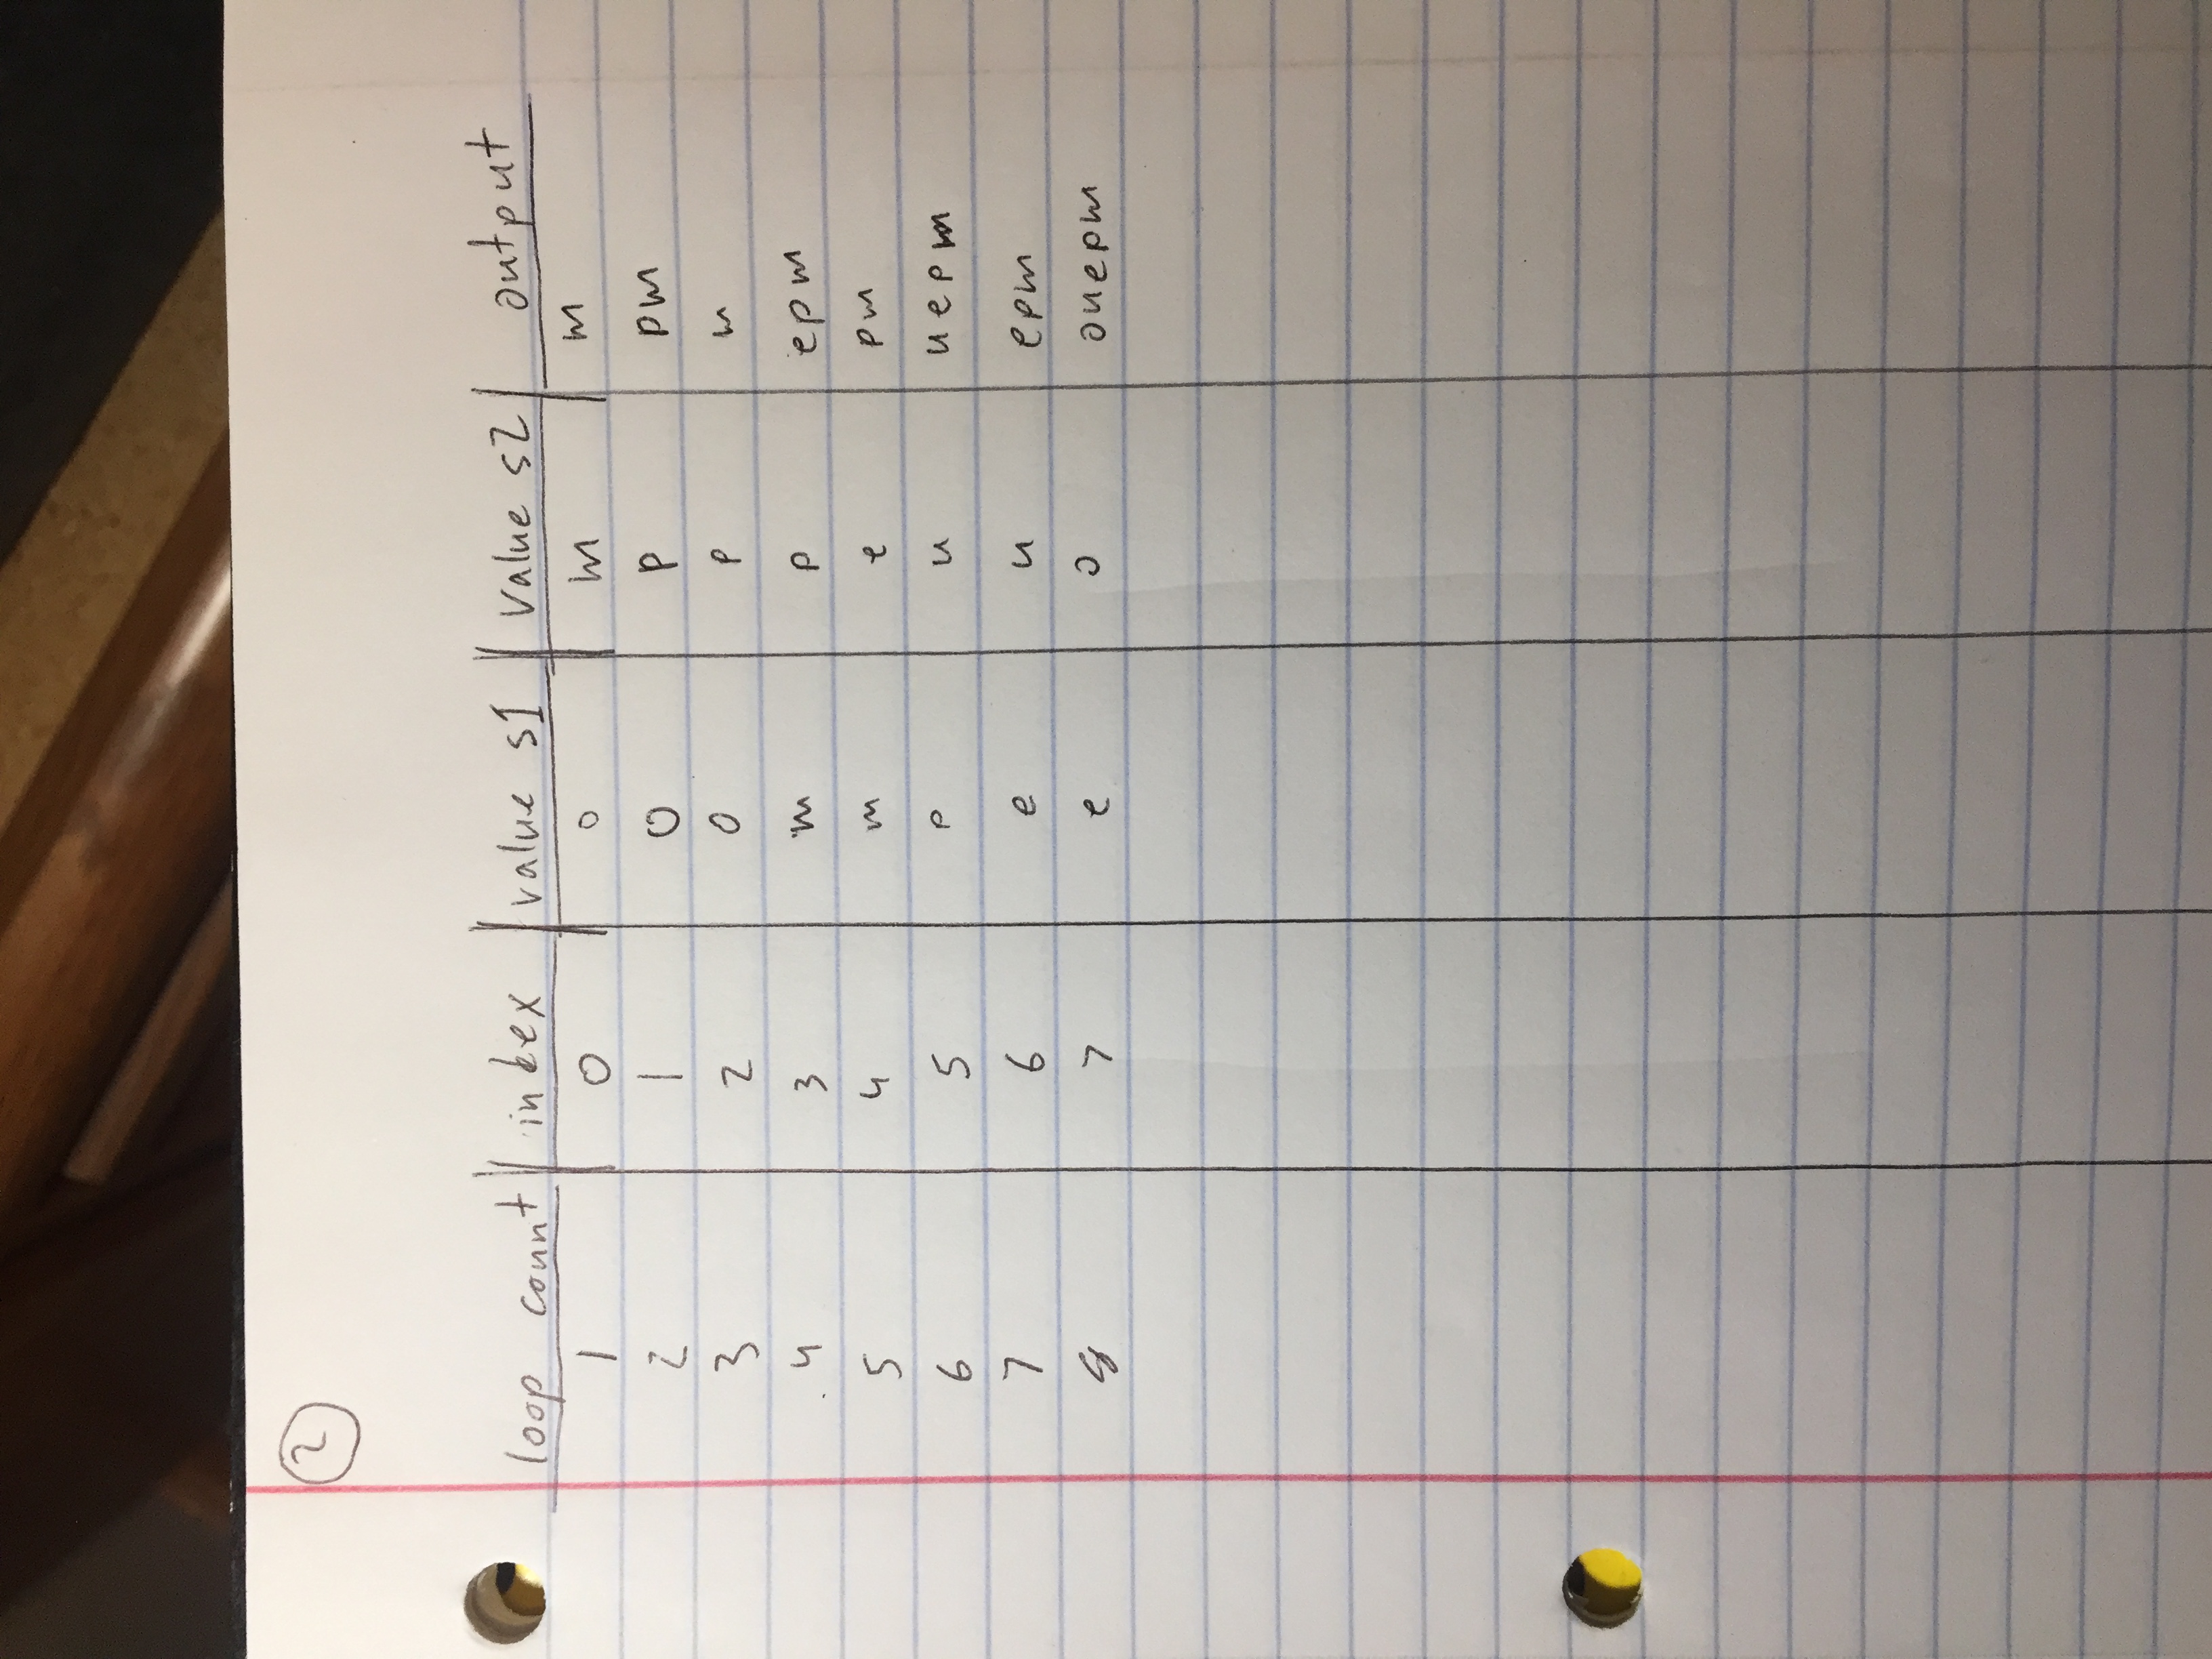 2
loop count index value s1 value s2 output
1 0 o m m
2 1 o p pm
3 2 o p m
4 3 m p epm
5 4 m e pm
6 5 p u uepm
7 6 e u epm
8 7 e o ouepm